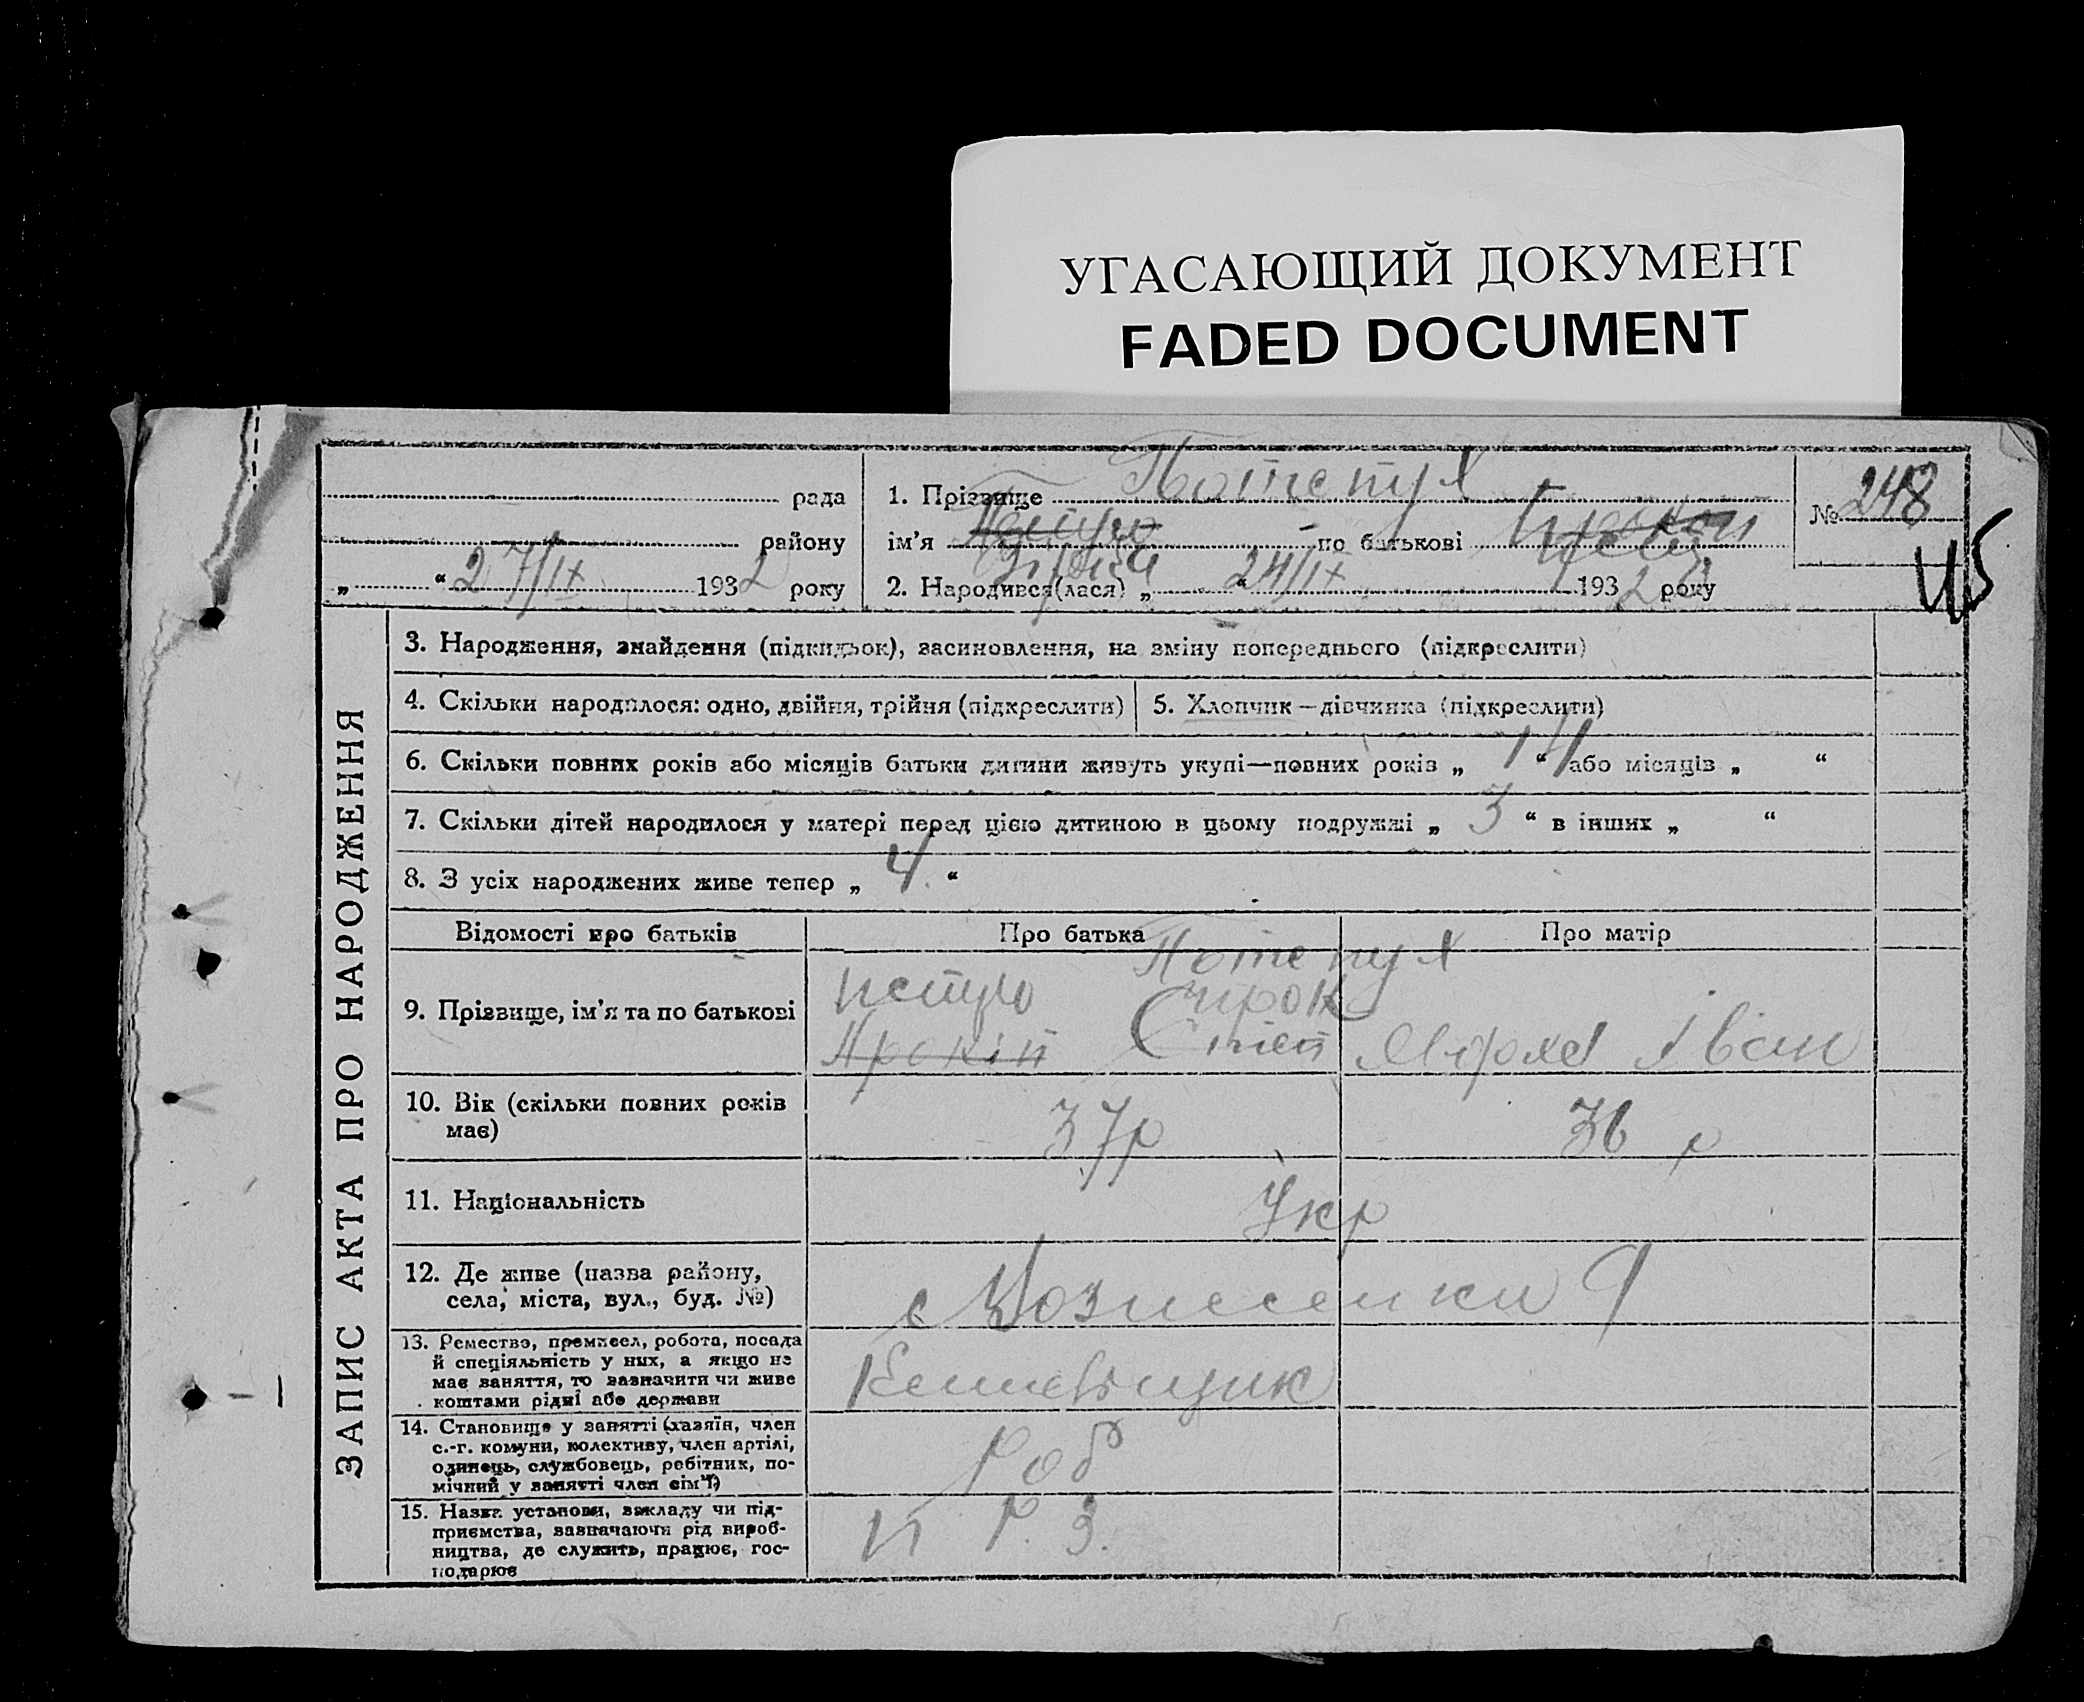 УГАСАЮЩИЙ ДОКУМЕНТ
FADED DOCUMENT
рада
району
„ “ 27/IX 1932 року
1. Прізвище Потепух
ім’я Петро по батькові Прокоп
2. Народився(лася) „ “ 24/IX 1932 року
№ 248
ЗАПИС АКТА ПРО НАРОДЖЕННЯ
3. Народження, знайдення (підкидьок), засиновлення, на зміну попереднього (підкреслити)
4. Скільки народилося: одно, двійня, трійня (підкреслити)
5. Хлопчик—дівчинка (підкреслити)
6. Скільки повних років або місяців батьки дитини живуть укупі—повних років „ “ або місяців „ “
7. Скільки дітей народилося у матері перед цією дитиною в цьому подружжі „ 3 “ в інших „ “
8. З усіх народжених живе тепер „ 4 “
Відомості про батьків
Про батька
Про матір
9. Прізвище, ім’я та по батькові
Потепух
Петро Прок
Прокіп Степ
Марха Іван
10. Вік (скільки повних років
має)
37р
36 р
11. Національність
Укр
12. Де живе (назва району,
села, міста, вул., буд. №)
с Вознесенки
13. Ремество, промисел, робота, посада
й спеціяльність у них, а якщо не
має заняття, то зазначити чи живе
коштами рідні або держави
14. Становище у занятті (хазяїн, член
с.-г. комуни, колективу, член артілі,
одинець, службовець, робітник, по-
мічний у занятті член сім’ї)
Роб
15. Назва установи, закладу чи під-
приємства, зазначаючи рід вироб-
ництва, де служить, працює, гос-
подарює
П. Р. З.